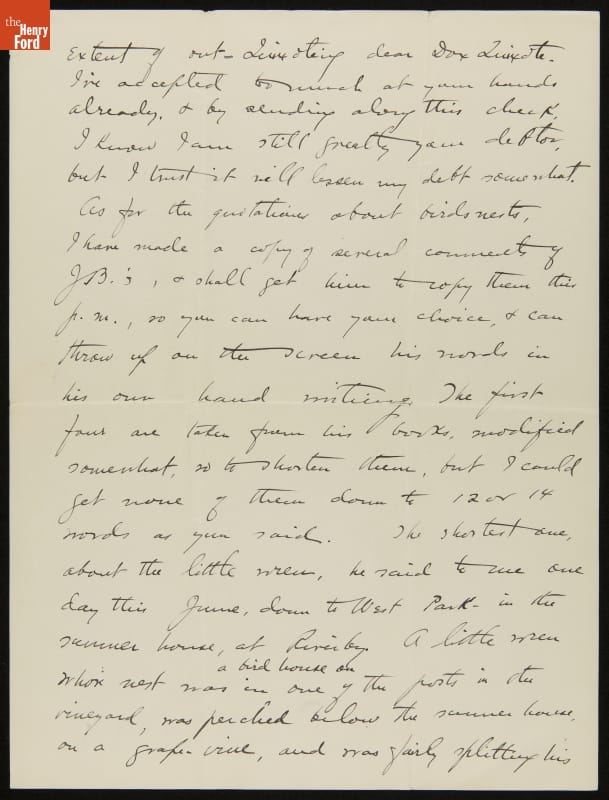 the
Henry
Ford
extent of out-Quixoteing dear Don Quixote.
I've accepted too much at your hands
already, & by sending along this check,
I know I am still greatly your debtor,
but I trust it will lessen my debt somewhat.
As for the quotations about birds nests,
I have made a copy of several comments of
J.B.'s, & shall get him to copy them this
p.m., so you can have your choice, & can
throw up on the screen his words in
his own hand writing. The first
four are taken from his books, modified
somewhat, so to shorten them, but I could
get none of them down to 12 or 14
words as you said. The shortest one,
about the little wren, he said to me one
day this June, down to West Park - in the
summer house, at Riverby. A little wren
a bird house on
whose nest was in one of the posts in the
vineyard, was perched below the summer house,
on a grape-vine, and was fairly splitting his